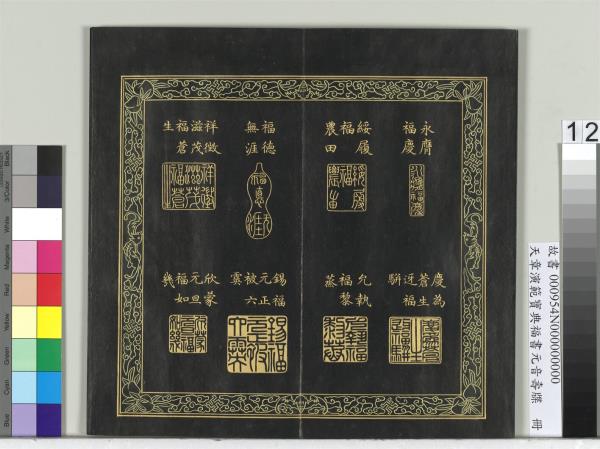 永膺
福慶
綏履
福
農田
福德
無涯
祥徵
滋茂
福蒼
生
慶為
蒼生
迓福
駢
允執
福黎
蒸
錫福
元正
被六
寰
欣蒙
元旦
福如
幾
12
故書 000954N000000000
天章演範寶典福書元音壽牒 冊
Black
3/Color
White
Magenta
Red
Yellow
Green
Cyan
Blue